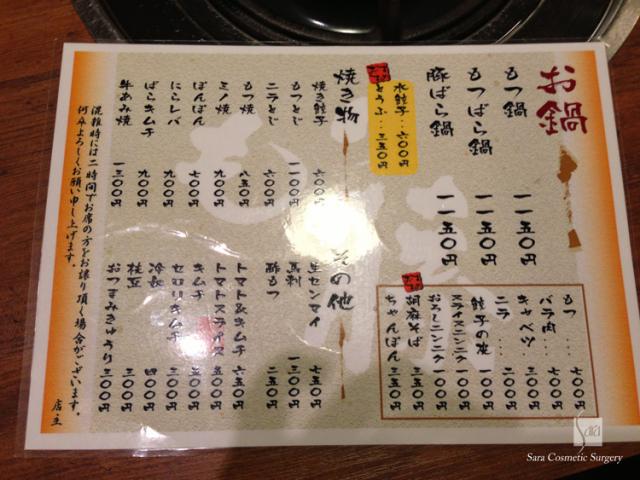 お鍋
もつ鍋 一一五〇円
もつばら鍋 一一五〇円
豚ばら鍋 一一五〇円
水餃子‥六〇〇円
とうふ‥三五〇円
もつ‥‥七〇〇円
バラ肉‥‥七〇〇円
キャベツ‥三〇〇円
ニラ‥‥二〇〇円
餃子の皮 一〇〇円
スライスニンニク 一〇〇円
おろしニンニク 一〇〇円
胡麻そば 三五〇円
ちゃんぽん 三五〇円
焼き物
焼き餃子 六〇〇円
もつとじ 一一〇〇円
ニラとじ 六〇〇円
もつ焼 八五〇円
ミノ焼 九〇〇円
ぽんぽん 七〇〇円
にらレバ 九〇〇円
ばらキムチ 九〇〇円
牛あみ焼 一三〇〇円
その他
生センマイ 七五〇円
馬刺 一三〇〇円
酢もつ 二五〇円
トマト&キムチ 六五〇円
トマトスライス 五〇〇円
キムチ 三〇〇円
セロリキムチ 三〇〇円
冷奴 四〇〇円
枝豆 三〇〇円
おつまみきゅうり 三〇〇円
混雑時には二時間でお席の方をお譲り頂く場合がございます。
何卒よろしくお願い申し上げます。
店主
Sara
Sara Cosmetic Surgery